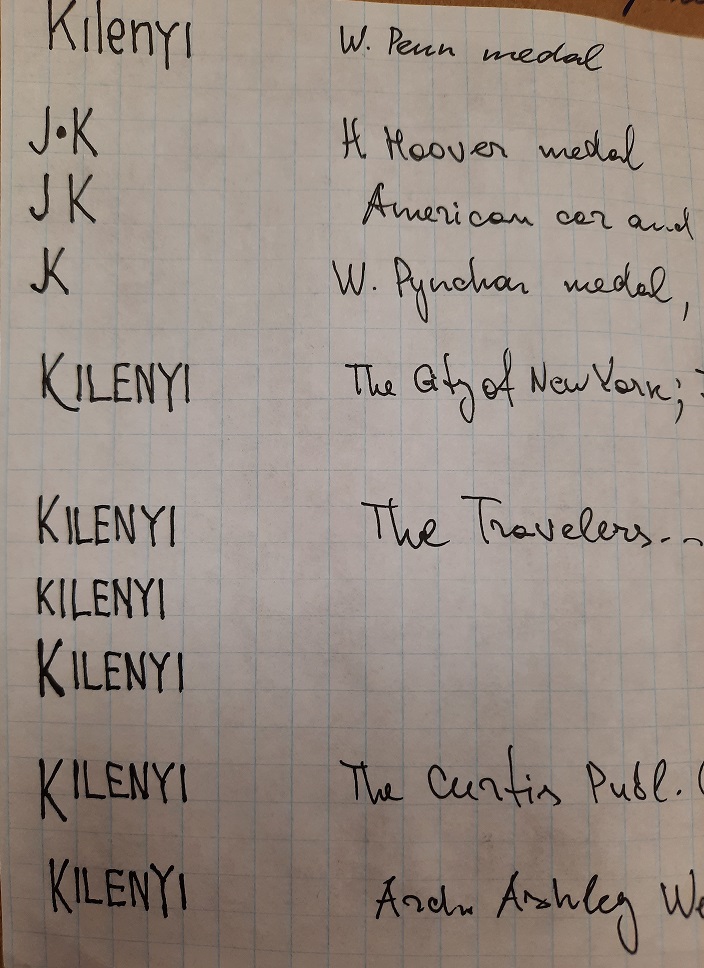 Kilenyi W. Penn medal
J•K H. Hoover medal
J K American car and
JK W. Pynchon medal,
KILENYI The City of New York;
KILENYI The Travelers...
KILENYI
KILENYI
KILENYI The Curtis Publ. (
KILENYI Ashley We